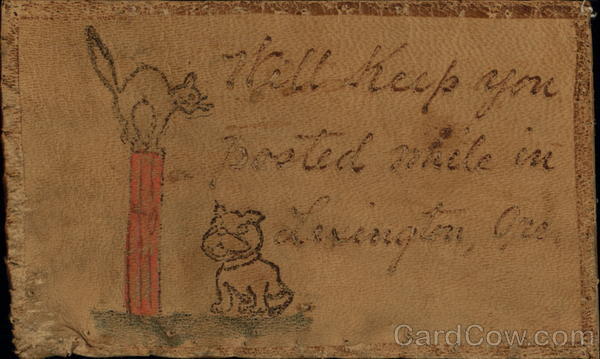 Will Keep you
posted while in
Lexington, Ore.
CardCow.com